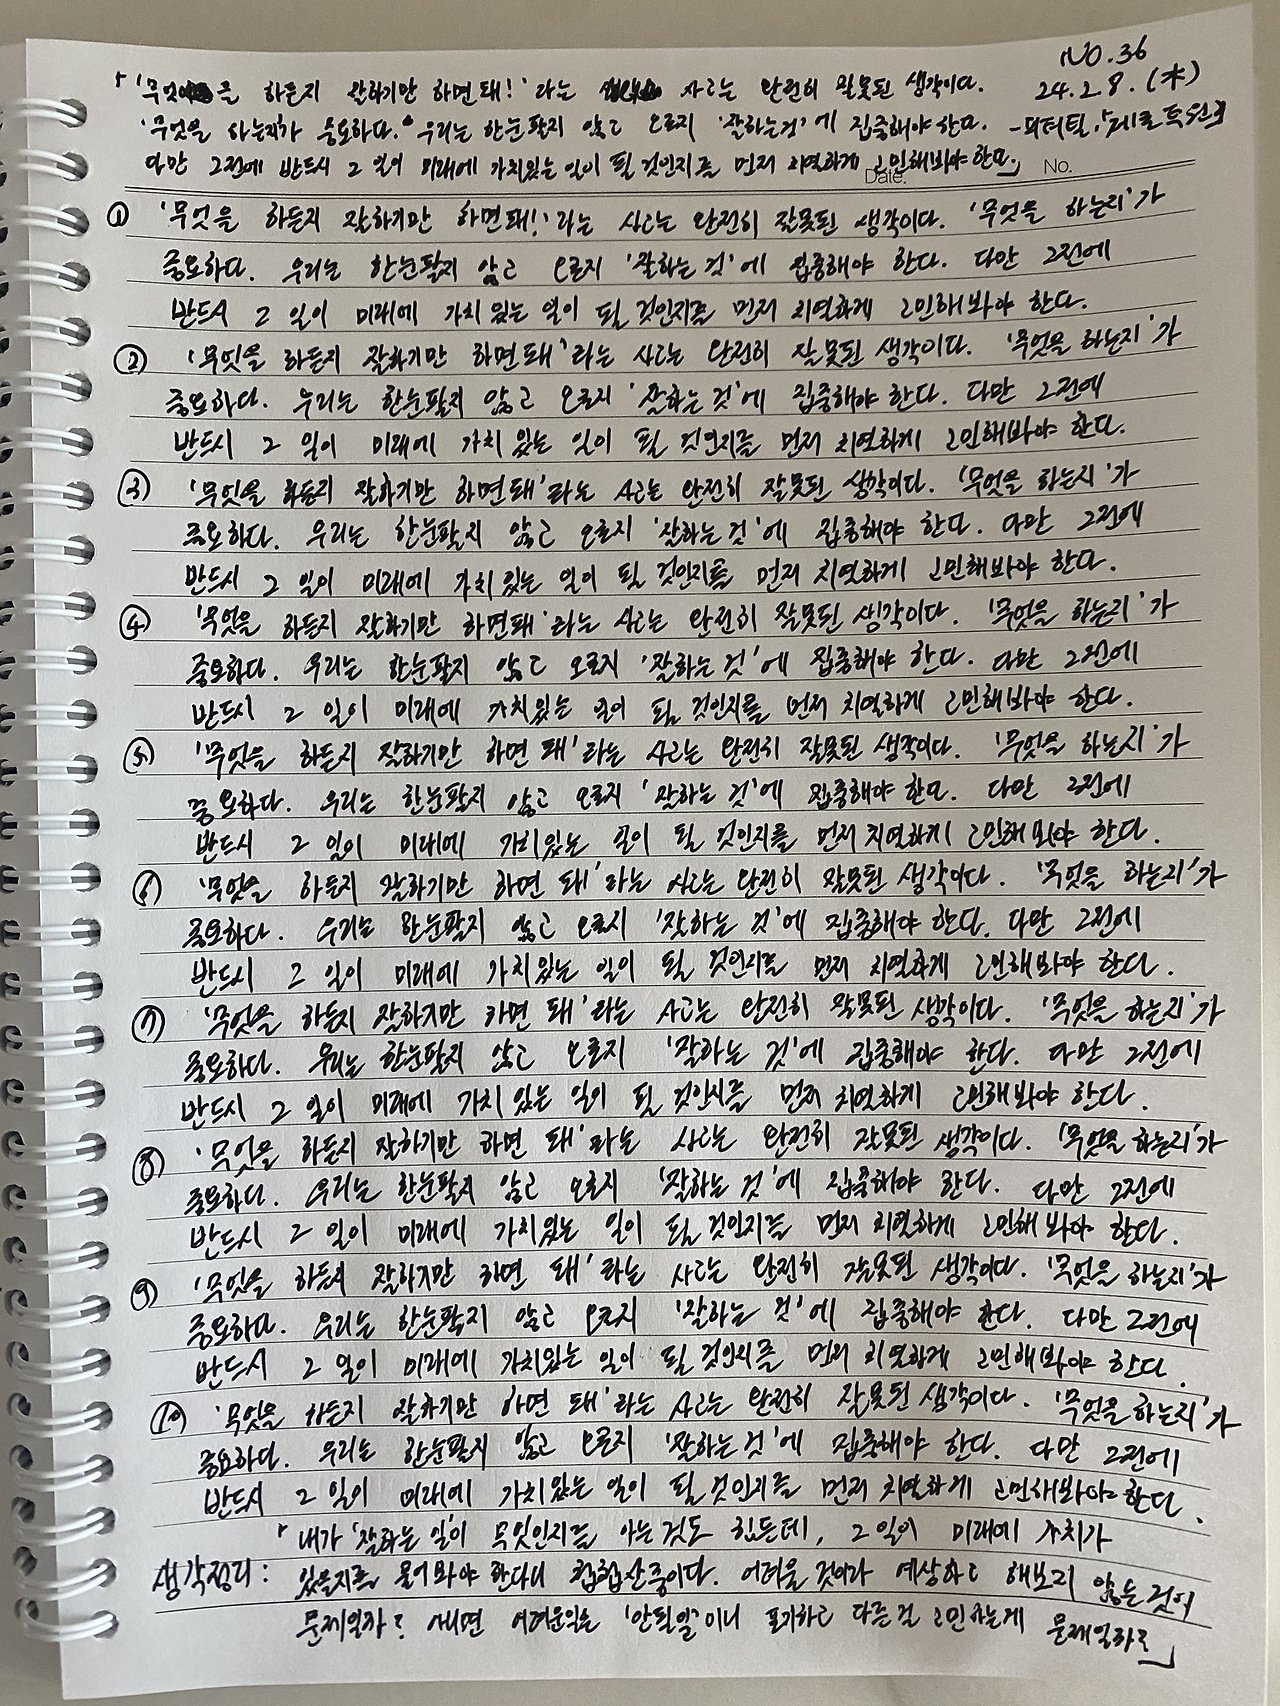 No.36
「'무엇을 하든지 잘하기만 하면 돼!' 라는 사고는 완전히 잘못된 생각이다. 24.2.8.(木)
'무엇을 하는지'가 중요하다. 우리는 한눈팔지 않고 오로지 '잘하는 것'에 집중해야 한다. -피터 틸, 「제로 투 원」
다만 그전에 반드시 그 일이 미래에 가치있는 일이 될 것인지를 먼저 치열하게 고민해봐야 한다.」
Date. No.
① '무엇을 하든지 잘하기만 하면 돼!' 라는 사고는 완전히 잘못된 생각이다. '무엇을 하는지'가
중요하다. 우리는 한눈팔지 않고 오로지 '잘하는 것'에 집중해야 한다. 다만 그전에
반드시 그 일이 미래에 가치 있는 일이 될 것인지를 먼저 치열하게 고민해봐야 한다.
② '무엇을 하든지 잘하기만 하면 돼' 라는 사고는 완전히 잘못된 생각이다. '무엇을 하는지'가
중요하다. 우리는 한눈팔지 않고 오로지 '잘하는 것'에 집중해야 한다. 다만 그전에
반드시 그 일이 미래에 가치 있는 일이 될 것인지를 먼저 치열하게 고민해봐야 한다.
③ '무엇을 하든지 잘하기만 하면 돼' 라는 사고는 완전히 잘못된 생각이다. '무엇을 하는지'가
중요하다. 우리는 한눈팔지 않고 오로지 '잘하는 것'에 집중해야 한다. 다만 그전에
반드시 그 일이 미래에 가치 있는 일이 될 것인지를 먼저 치열하게 고민해봐야 한다.
④ '무엇을 하든지 잘하기만 하면 돼' 라는 사고는 완전히 잘못된 생각이다. '무엇을 하는지'가
중요하다. 우리는 한눈팔지 않고 오로지 '잘하는 것'에 집중해야 한다. 다만 그전에
반드시 그 일이 미래에 가치있는 일이 될 것인지를 먼저 치열하게 고민해봐야 한다.
⑤ '무엇을 하든지 잘하기만 하면 돼' 라는 사고는 완전히 잘못된 생각이다. '무엇을 하는지'가
중요하다. 우리는 한눈팔지 않고 오로지 '잘하는 것'에 집중해야 한다. 다만 그전에
반드시 그 일이 미래에 가치있는 일이 될 것인지를 먼저 치열하게 고민해봐야 한다.
⑥ '무엇을 하든지 잘하기만 하면 돼' 라는 사고는 완전히 잘못된 생각이다. '무엇을 하는지'가
중요하다. 우리는 한눈팔지 않고 오로지 '잘하는 것'에 집중해야 한다. 다만 그전에
반드시 그 일이 미래에 가치있는 일이 될 것인지를 먼저 치열하게 고민해봐야 한다.
⑦ '무엇을 하든지 잘하기만 하면 돼' 라는 사고는 완전히 잘못된 생각이다. '무엇을 하는지'가
중요하다. 우리는 한눈팔지 않고 오로지 '잘하는 것'에 집중해야 한다. 다만 그전에
반드시 그 일이 미래에 가치 있는 일이 될 것인지를 먼저 치열하게 고민해봐야 한다.
⑧ '무엇을 하든지 잘하기만 하면 돼' 라는 사고는 완전히 잘못된 생각이다. '무엇을 하는지'가
중요하다. 우리는 한눈팔지 않고 오로지 '잘하는 것'에 집중해야 한다. 다만 그전에
반드시 그 일이 미래에 가치있는 일이 될 것인지를 먼저 치열하게 고민해봐야 한다.
⑨ '무엇을 하든지 잘하기만 하면 돼' 라는 사고는 완전히 잘못된 생각이다. '무엇을 하는지'가
중요하다. 우리는 한눈팔지 않고 오로지 '잘하는 것'에 집중해야 한다. 다만 그전에
반드시 그 일이 미래에 가치있는 일이 될 것인지를 먼저 치열하게 고민해봐야 한다.
⑩ '무엇을 하든지 잘하기만 하면 돼' 라는 사고는 완전히 잘못된 생각이다. '무엇을 하는지'가
중요하다. 우리는 한눈팔지 않고 오로지 '잘하는 것'에 집중해야 한다. 다만 그전에
반드시 그 일이 미래에 가치있는 일이 될 것인지를 먼저 치열하게 고민해봐야 한다.
「내가 '잘하는 일'이 무엇인지를 아는 것도 힘든데, 그 일이 미래에 가치가
생각정리: 있을지를 물어봐야 한다니 첩첩산중이다. 어려울 것이라 예상하고 해보지 않는 것이
문제일까? 아니면 어려운일은 '안될일'이니 포기하고 다른걸 고민하는게 문제일까?」